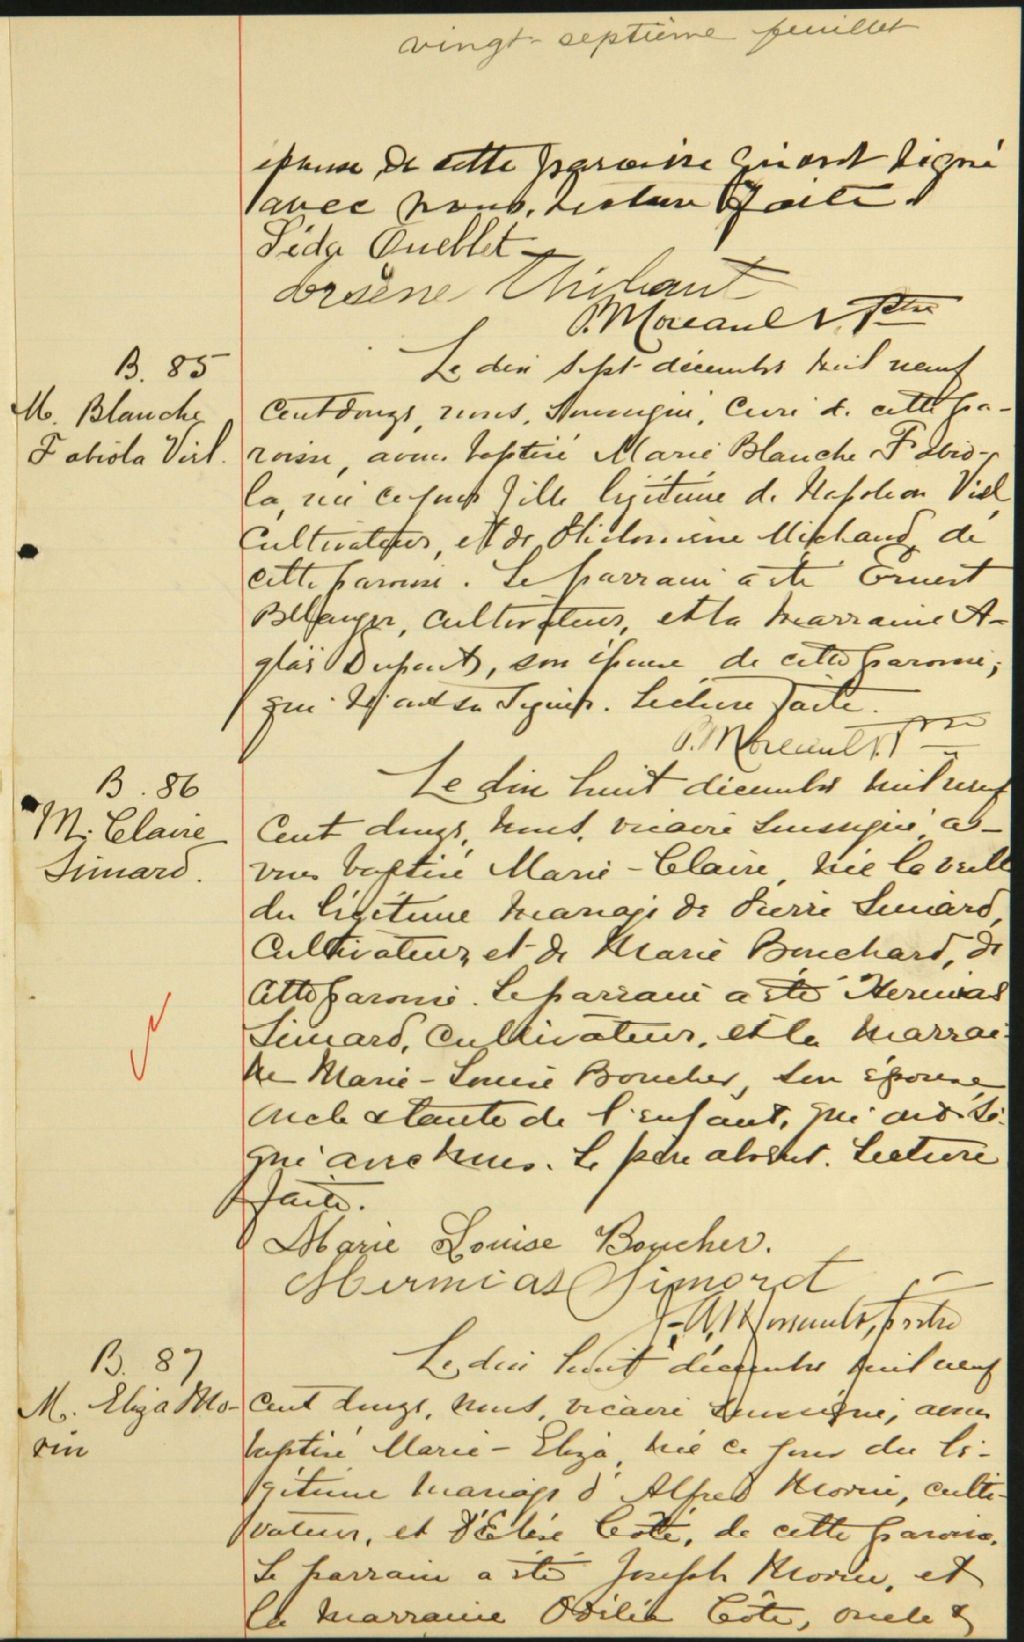 vingt-septième feuillet
épouse, de cette paroisse qui ont signé
avec nous. Lecture faite.
Léda Ouellet
Arsène Thibault
P. Moreault Ptre
B. 85
M. Blanche
Fabiola Viel.
Le dix sept décembre mil neuf
cent douze, nous, soussigné, curé de cette pa-
roisse, avons baptisé Marie Blanche Fabio-
la, née ce jour fille légitime de Napoléon Viel
cultivateur, et de Philomène Michaud de
cette paroisse. Le parrain a été Ernest
Bélanger, cultivateur, et la marraine A-
glaé Dupont, son épouse de cette paroisse,
qui n'ont su signer. Lecture faite.
P. Moreault Ptre
B. 86
M. Claire
Simard.
Le dix huit décembre mil neuf
cent douze, nous, vicaire soussigné, a-
vons baptisé Marie-Claire, née la veille
du légitime mariage de Pierre Simard,
cultivateur, et de Marie Bouchard, de
cette paroisse. Le parrain a été Hermias
Simard, cultivateur, et la marrai-
ne Marie-Louise Boucher, son épouse
oncle & tante de l'enfant, qui ont si-
gné avec nous. Le père absent. Lecture
faite.
Marie Louise Boucher.
Hermias Simard
Ptre
B. 87
M. Eliza Mo-
rin
Le dix huit décembre mil neuf
cent douze, nous, vicaire soussigné, avons
baptisé Marie-Eliza, née ce jour du lé-
gitime mariage d'Alfred Morin, culti-
vateur, et d'Elise Côté, de cette paroisse.
Le parrain a été Joseph Morin, et
la marraine Odilia Côté, oncle &